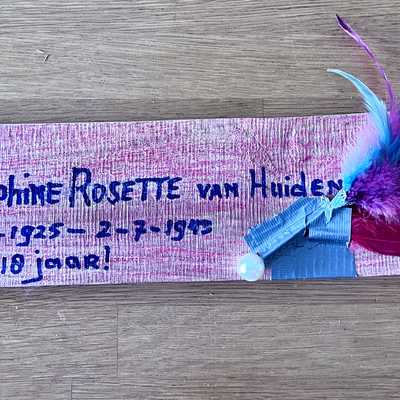 phine ROSETTE VAN HUIDEN
-1925 - 2-7-1943
18 jaar!